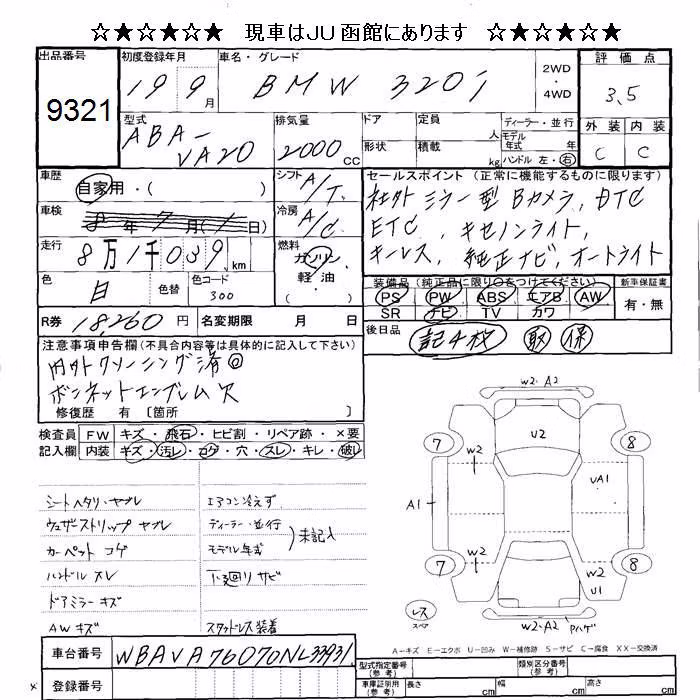 ☆★☆★☆★ 現車はJU函館にあります ☆★☆★☆★
出品番号 9321
初度登録年月 19 9月
車名・グレード BMW 320i
2WD・4WD
評価点 3.5
外装 C 内装 C
型式 ABA-VA20
排気量 2000cc
ドア 形状
定員 人 積載 kg
ディーラー・並行
モデル年式 年
ハンドル 左・右
車歴 自家用・( )
シフト A/T
セールスポイント(正常に機能するものに限ります)
社外ミラー型Bカメラ、DTC
ETC、キセノンライト、
キーレス、純正ナビ、オートライト
車検 年7月( 日)
冷房 A/C
走行 8万1千039km
燃料 ガソリン 軽油 ・( )
色 白 色替 色コード 300
装備品(純正品に限り○をつけてください) 新車保証書
PS PW ABS エアB AW 有・無
SR ナビ TV カワ
R券 18,260円 名変期限 月 日
後日品 記4枚 取 保
注意事項申告欄(不具合内容等は具体的に記入して下さい)
内外クリーニング済◎
ボンネットエンブレム欠
修復歴 有〔箇所 〕
検査員記入欄 FW キズ・飛石・ヒビ割・リペア跡・×要
内装 キズ・汚レ・コゲ・穴・スレ・キレ・破レ
シートヘタリ・ヤブレ エアコン冷えず
ウェザストリップヤブレ ディーラー・並行
カーペットコゲ モデル年式 未記入
ハンドルスレ 下廻りサビ
ドアミラーキズ
AWキズ スタッドレス装着
W2・A2
U2
7 8
W2
UA1
A1
A1
W2 W2
7 8
U1
レス
スペア
W2・A2 Pハゲ
A-キズ E-エクボ U-凹み W-補修跡 S-サビ C-腐食 XX-交換済
車台番号 WBAVA76070NL33931
登録番号
型式指定番号(参考) 類別区分番号(参考)
車庫証明用(参考) 長さ cm 幅 cm 高さ cm